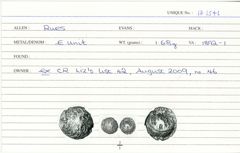 UNIQUE No.: 12.1541
ALLEN: Rues EVANS: MACK:
METAL/DENOM: E unit WT. (grams): 1.68g VA: 1892-1
FOUND:
OWNER: ex CR Liz's list 42, August 2009, no. 46